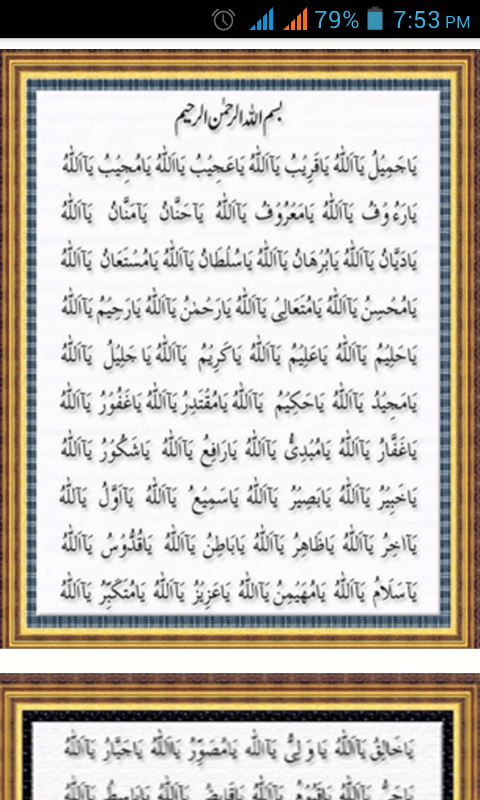 79% 7:53 PM
بسم الله الرحمٰن الرحیم
یَاجَمِیْلُ یَآاَللّٰهُ یَاقَرِیْبُ یَآاَللّٰهُ یَاعَجِیْبُ یَااَللّٰهُ یَامُجِیْبُ یَآاَللّٰهُ
یَارَءُوْفُ یَآاَللّٰهُ یَامَعْرُوْفُ یَآاَللّٰهُ یَاحَنَّانُ یَآمَنَّانُ یَآاَللّٰهُ
یَادَیَّانُ یَآاَللّٰهُ یَابُرْهَانُ یَآاَللّٰهُ یَاسُلْطَانُ یَآاَللّٰهُ یَامُسْتَعَانُ یَآاَللّٰهُ
یَامُحْسِنُ یَآاَللّٰهُ یَامُتَعَالِیْ یَآاَللّٰهُ یَارَحْمٰنُ یَآاَللّٰهُ یَارَحِیْمُ یَآاَللّٰهُ
یَاحَلِیْمُ یَآاَللّٰهُ یَاعَلِیْمُ یَآاَللّٰهُ یَاکَرِیْمُ یَآاَللّٰهُ یَا جَلِیْلُ یَآاَللّٰهُ
یَامَجِیْدُ یَآاَللّٰهُ یَاحَکِیْمُ یَآاَللّٰهُ یَامُقْتَدِرُ یَآاَللّٰهُ یَاغَفُوْرُ یَآاَللّٰهُ
یَاغَفَّارُ یَآاَللّٰهُ یَامُبْدِیُٔ یَآاَللّٰهُ یَارَافِعُ یَآاَللّٰهُ یَاشَکُوْرُ یَآاَللّٰهُ
یَاخَبِیْرُ یَآاَللّٰهُ یَابَصِیْرُ یَآاَللّٰهُ یَاسَمِیْعُ یَآاَللّٰهُ یَآاَوَّلُ یَآاَللّٰهُ
یَآاٰخِرُ یَآاَللّٰهُ یَاظَاهِرُ یَآاَللّٰهُ یَابَاطِنُ یَآاَللّٰهُ یَاقُدُّوْسُ یَآاَللّٰهُ
یَآسَلَامُ یَآاَللّٰهُ یَامُهَیْمِنُ یَآاَللّٰهُ یَاعَزِیْزُ یَآاَللّٰهُ یَامُتَکَبِّرُ یَآاَللّٰهُ
یَاخَالِقُ یَآاَللّٰهُ یَا وَلِیُّ یَآاَللّٰهُ یَامُصَوِّرُ یَااَللّٰهُ یَاجَبَّارُ یَآاَللّٰهُ